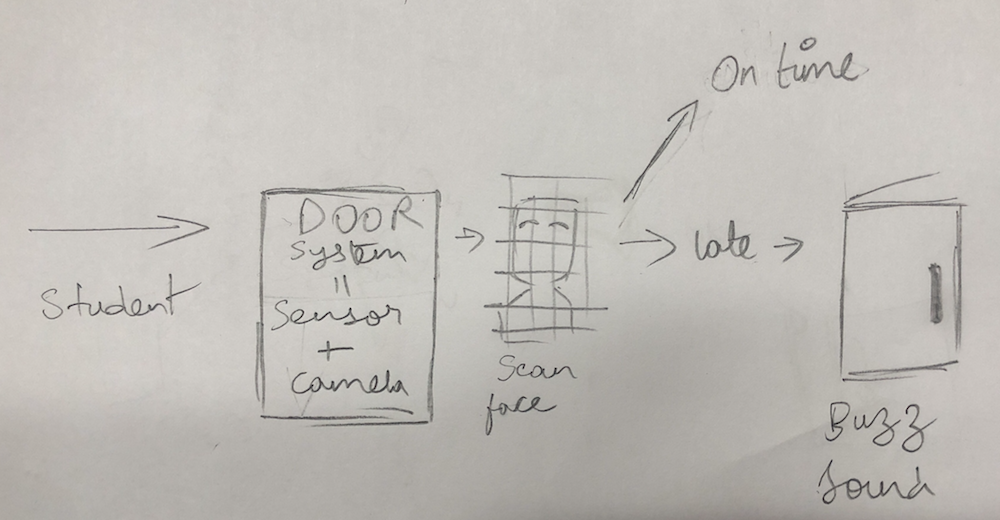 On time
DOOR
system
=
Sensor
+
Camera
Student
Scan
face
late
Buzz
Sound